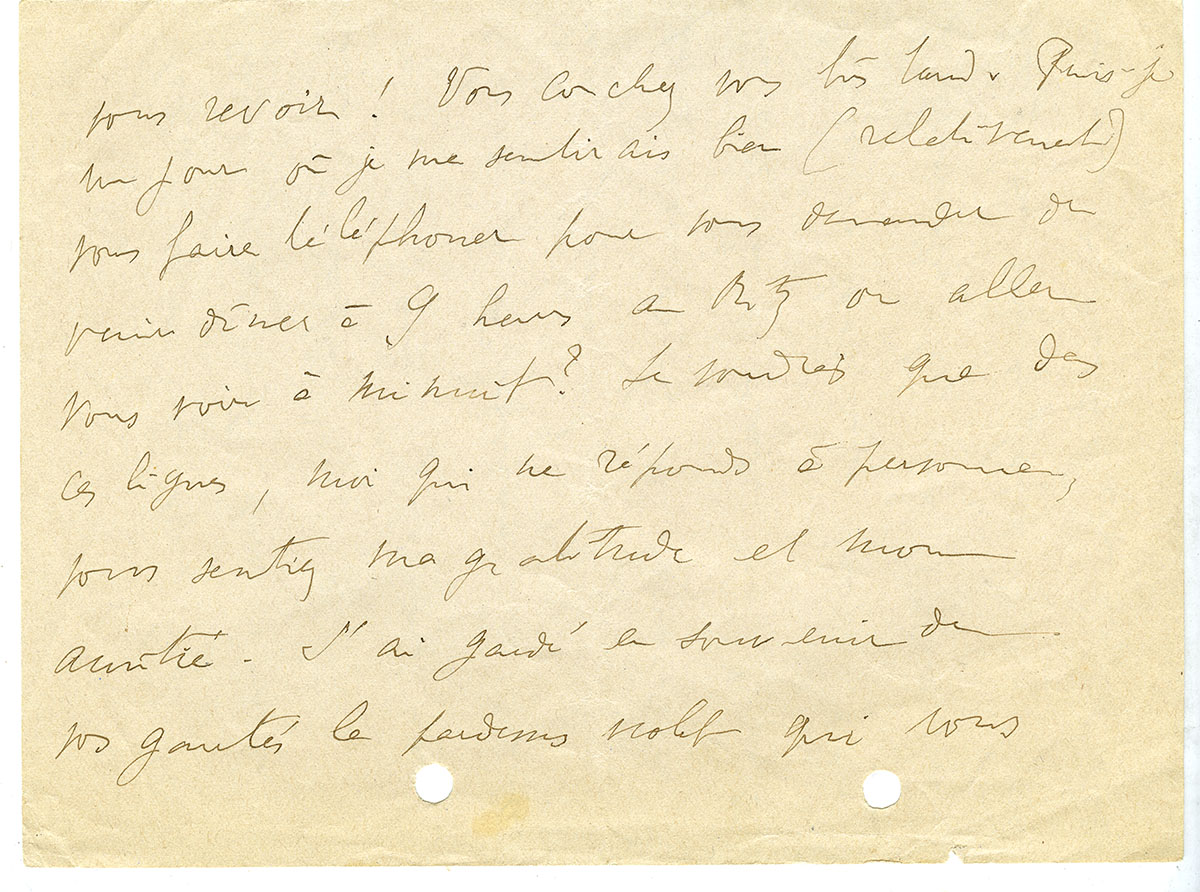 vous revoir ! Vous couchez vous très tard. Puis-je
un jour où je me sentirais bien (relativement)
vous faire téléphoner pour vous demander de
venir dîner à 9 heures au Ritz ou aller
vous voir à minuit ? Je voudrais que dans
ces lignes, moi qui ne réponds à personne,
vous sentiez ma gratitude et mon
amitié. J'ai gardé en souvenir de
vos le pardessus qui vous